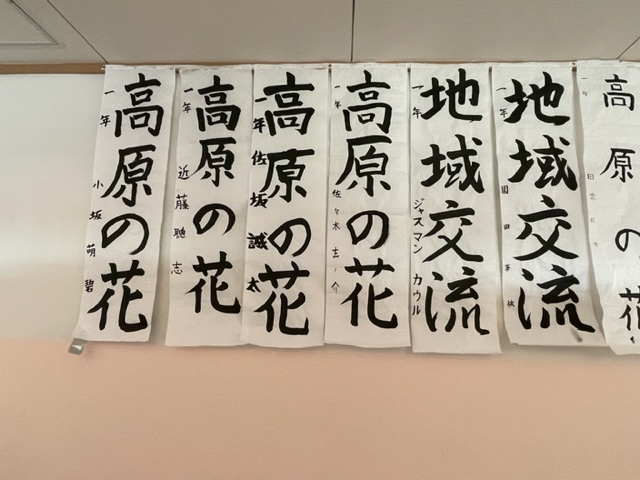 高原の花
一年 小坂萌碧
高原の花
一年 近藤聰志
高原の花
一年 佐坂誠太
高原の花
一年 佐々木玄ノ介
地域交流
一年 ジャスマン カウル
地域交流
一年
高原の花
一年